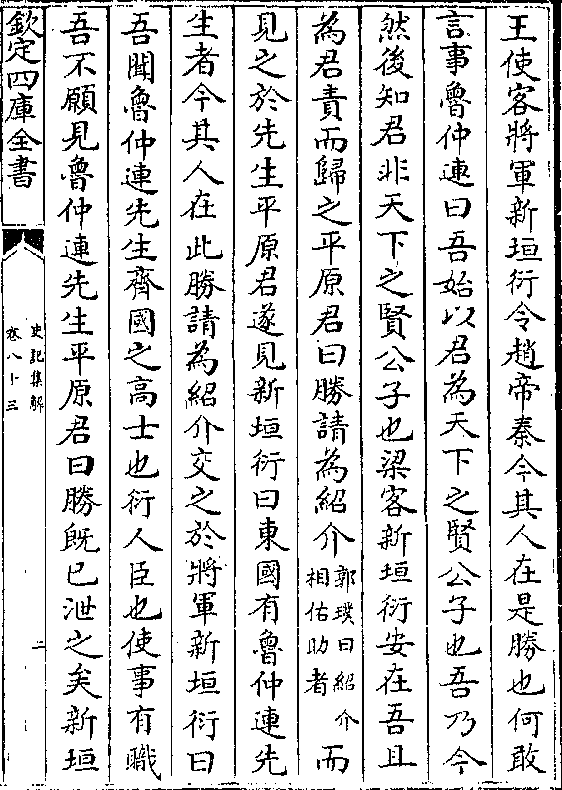 王使客將軍新垣衍令趙帝秦今其人在是勝也何敢
言事魯仲連曰吾始以君為天下之賢公子也吾乃今
然後知君非天下之賢公子也梁客新垣衍安在吾且
為君責而歸之平原君曰勝請為紹介郭璞曰紹介相佑助者而
見之於先生平原君遂見新垣衍曰東國有魯仲連先
生者今其人在此勝請為紹介交之於將軍新垣衍曰
吾聞魯仲連先生齊國之高士也衍人臣也使事有職
吾不願見魯仲連先生平原君曰勝既已泄之矣新垣
欽定四庫全書
史記集解
卷八十三
二